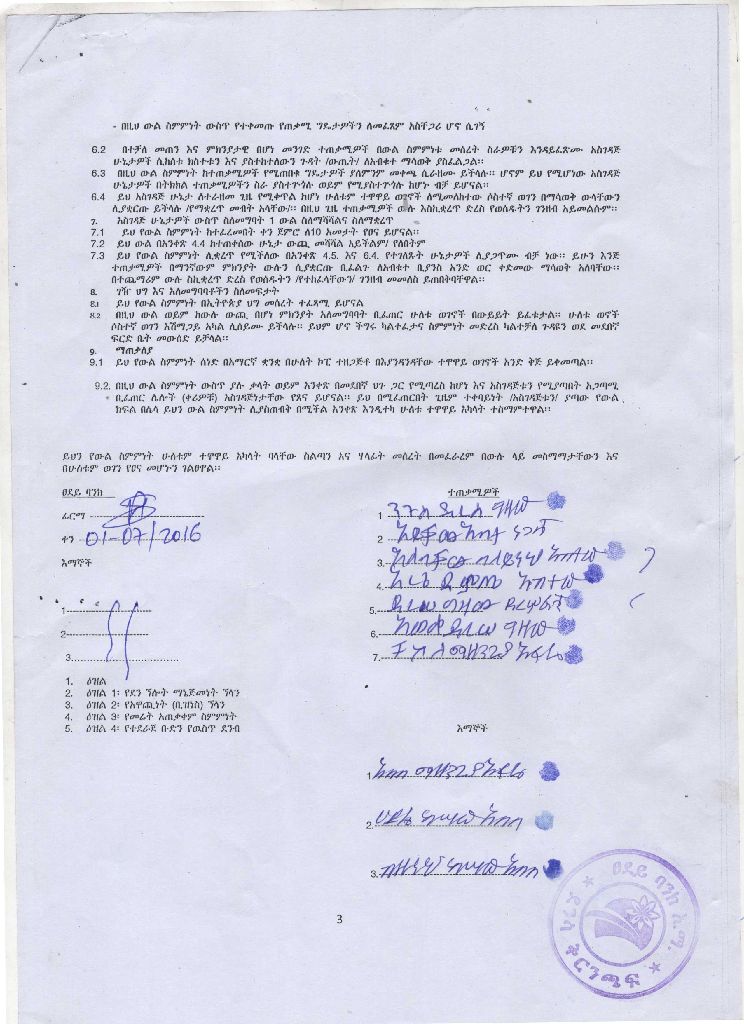 - በዚህ ውል ስምምነት ውስጥ የተቀመጡ የጠቃሚ ግዴታዎችን ለመፈጸም አስቸጋሪ ሆኖ ሲገኝ
6.2 በተቻለ መጠን እና ምክንያታዊ በሆነ መንገድ ተጠቃሚዎች በውል ስምምነቱ መሰረት ስራዎቹን እንዳይፈጽሙ አስገዳጅ
ሁኔታዎች ሲከሰቱ ክስተቱን እና ያስተከተለውን ጉዳት /ውጤት/ ለአብቁተ ማሳወቅ ያስፈልጋል፡፡
6.3 በዚህ ውል ስምምነት ከተጠቃሚዎች የሚጠበቁ ግዴታዎች ያለምንም መቀጫ ሊራዘሙ ይችላሉ፡፡ ሆኖም ይህ የሚሆነው አስገዳጅ
ሁኔታዎች በትክክል ተጠቃሚዎችን ስራ ያስተጓጎሉ ወይም የሚያስተጓጎሉ ከሆኑ ብቻ ይሆናል፡፡
6.4 ይህ አስገዳጅ ሁኔታ ለተራዘመ ጊዜ የሚቀጥል ከሆነ ሁለቱም ተዋዋይ ወገኖች ለሚመለከተው ሶስተኛ ወገን በማሳወቅ ውላቸውን
ሊያቋርጡ ይችላሉ /የማቋረጥ መብት አላቸው/፡፡ በዚህ ጊዜ ተጠቃሚዎች ውሉ እስኪቋረጥ ድረስ የወሰዱትን ገንዘብ አይመልሱም፡፡
7. አስገዳጅ ሁኔታዎች ውስጥ ስለመግባት 1 ውል ስለማሻሻልና ስለማቋረጥ
7.1 ይህ የውል ስምምነት ከተፈረመበት ቀን ጀምሮ ለ10 አመታት የፀና ይሆናል፡፡
7.2 ይህ ውል በአንቀጽ 4.4 ከተጠቀሰው ሁኔታ ውጪ መሻሻል አይችልም/ የለበትም
7.3 ይህ የውል ስምምነት ሊቋረጥ የሚችለው በአንቀጽ 4.5. እና 6.4. የተገለጹት ሁኔታዎች ሊያጋጥሙ ብቻ ነው፡፡ ይሁን እንጅ
ተጠቃሚዎች በማንኛውም ምክንያት ውሉን ሊያቋርጡ ቢፈልጉ ለአብቁተ ቢያንስ አንድ ወር ቀድመው ማሳወቅ አለባቸው፡፡
በተጨማሪም ውሉ ስኪቋረጥ ድረስ የወሰዱትን/ የተከፈላቸውን/ ገንዘብ መመለስ ይጠበቅባቸዋል፡፡
8. ገዥ ህግ እና አለመግባባቶችን ስለመፍታት
8.1 ይህ የውል ስምምነት በኢትዮጵያ ህግ መሰረት ተፈጻሚ ይሆናል
8.2 በዚህ ውል ወይም ከውሉ ውጪ በሆነ ምክንያት አለመግባባት ቢፈጠር ሁለቱ ወገኖች በውይይት ይፈቱታል፡፡ ሁለቱ ወኖች
ሶስተኛ ወገን አሽማጋይ አካል ሊሰይሙ ይችላሉ፡፡ ይህም ሆኖ ችግሩ ካልተፈታና ስምምነት መድረስ ካልተቻለ ጉዳዩን ወደ መደበኛ
ፍርድ ቤት መውሰድ ይቻላል፡፡
9. ማጠቃለያ
9.1 ይህ የውል ስምምነት ሰነድ በአማርኛ ቋንቋ በሁለት ኮፒ ተዘጋጅቶ በእያንዳንዳቸው ተዋዋይ ወገኖች እንድ ቅጅ ይቀመጣል፡፡
9.2. በዚህ ውል ስምምነት ውስጥ ያሉ ቃላት ወይም አንቀጽ በመደበኛ ህጉ ጋር የሚጣረስ ከሆነ እና አስገዳጅቱን የሚያጣበት አጋጣሚ
ቢፈጠር ሌሎች (ቀሪዎቹ) አስገዳጅነታቸው የጸና ይሆናል፡፡ ይህ በሚፈጠርበት ጊዜም ተቀባይነት /አስገዳጅቱን/ ያጣው የውል
ክፍል በሌላ ይህን ውል ስምምነት ሊያስጠብቅ በሚችል አንቀጽ እንዲተካ ሁለቱ ተዋዋይ አካላት ተስማምተዋል፡፡
ይህን የውል ስምምነት ሁለቱም ተዋዋይ አካላት ባላቸው ስልጣን እና ሃላፊት መሰረት በመፈራረም በውሉ ላይ መስማማታቸውን እና
በሁለቱም ወገን የፀና መሆኑን ገልፀዋል፡፡
ፀደይ ባንክ
ፊርማ
ቀን 01-07/2016
እማኞች
1
2
3
1. ዕዝል
2. ዕዝል 1፡ የደን ኘሎት ማኔጅመነት ኘላን
3. ዕዝል 2፡ የአዋጪነት (ቢዝነስ) ኘላን
4. ዕዝል 3፡ የመሬት አጠቃቀም ስምምነት
5. ዕዝል 4፡ የተደራጀ ቡድን የዉስጥ ደንብ
ተጠቃሚዎች
1
2
3.
4.
5.
6.
7.
እማኞች
1
2
3.
3
ፀደይ ባንክ አ.ማ.
ቅርንጫፍ